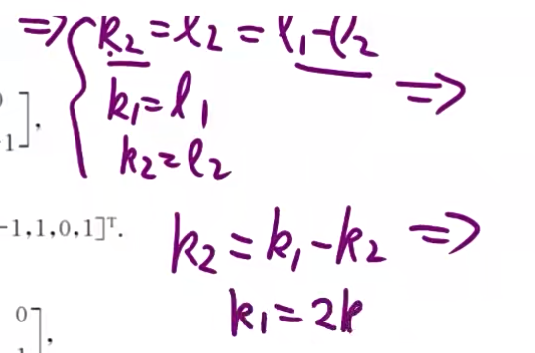 ⇒ { k₂ = l₂ = l₁-l₂
k₁ = l₁ ⇒
-1],
k₂ = l₂
-1,1,0,1]ᵀ.
k₂ = k₁-k₂ ⇒
k₁ = 2k
0],